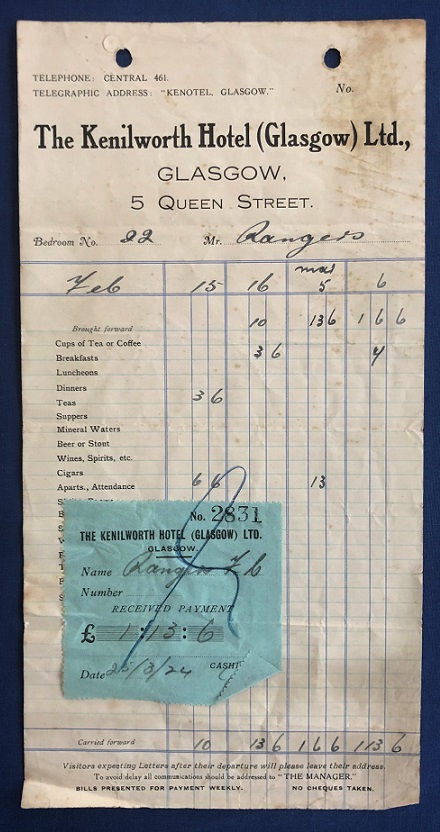 TELEPHONE: CENTRAL 461.
TELEGRAPHIC ADDRESS: "KENOTEL, GLASGOW."
No.
The Kenilworth Hotel (Glasgow) Ltd.,
GLASGOW,
5 QUEEN STREET.
Bedroom No. 22 Mr. Rangers
Feb 15 16 mar 5 6
Brought forward 10 13 6 1 6 6
Cups of Tea or Coffee
Breakfasts 3 6 4
Luncheons
Dinners
Teas 3 6
Suppers
Mineral Waters
Beer or Stout
Wines, Spirits, etc.
Cigars
Aparts., Attendance 6 6 13
No. 2831
THE KENILWORTH HOTEL (GLASGOW) LTD.
GLASGOW.
Name Rangers F C
Number
RECEIVED PAYMENT
£ 1 : 13 : 6
Date 25/3/24 CASHI
Carried forward 10 13 6 1 6 6 1 13 6
Visitors expecting Letters after their departure will please leave their address.
To avoid delay all communications should be addressed to "THE MANAGER."
BILLS PRESENTED FOR PAYMENT WEEKLY. NO CHEQUES TAKEN.